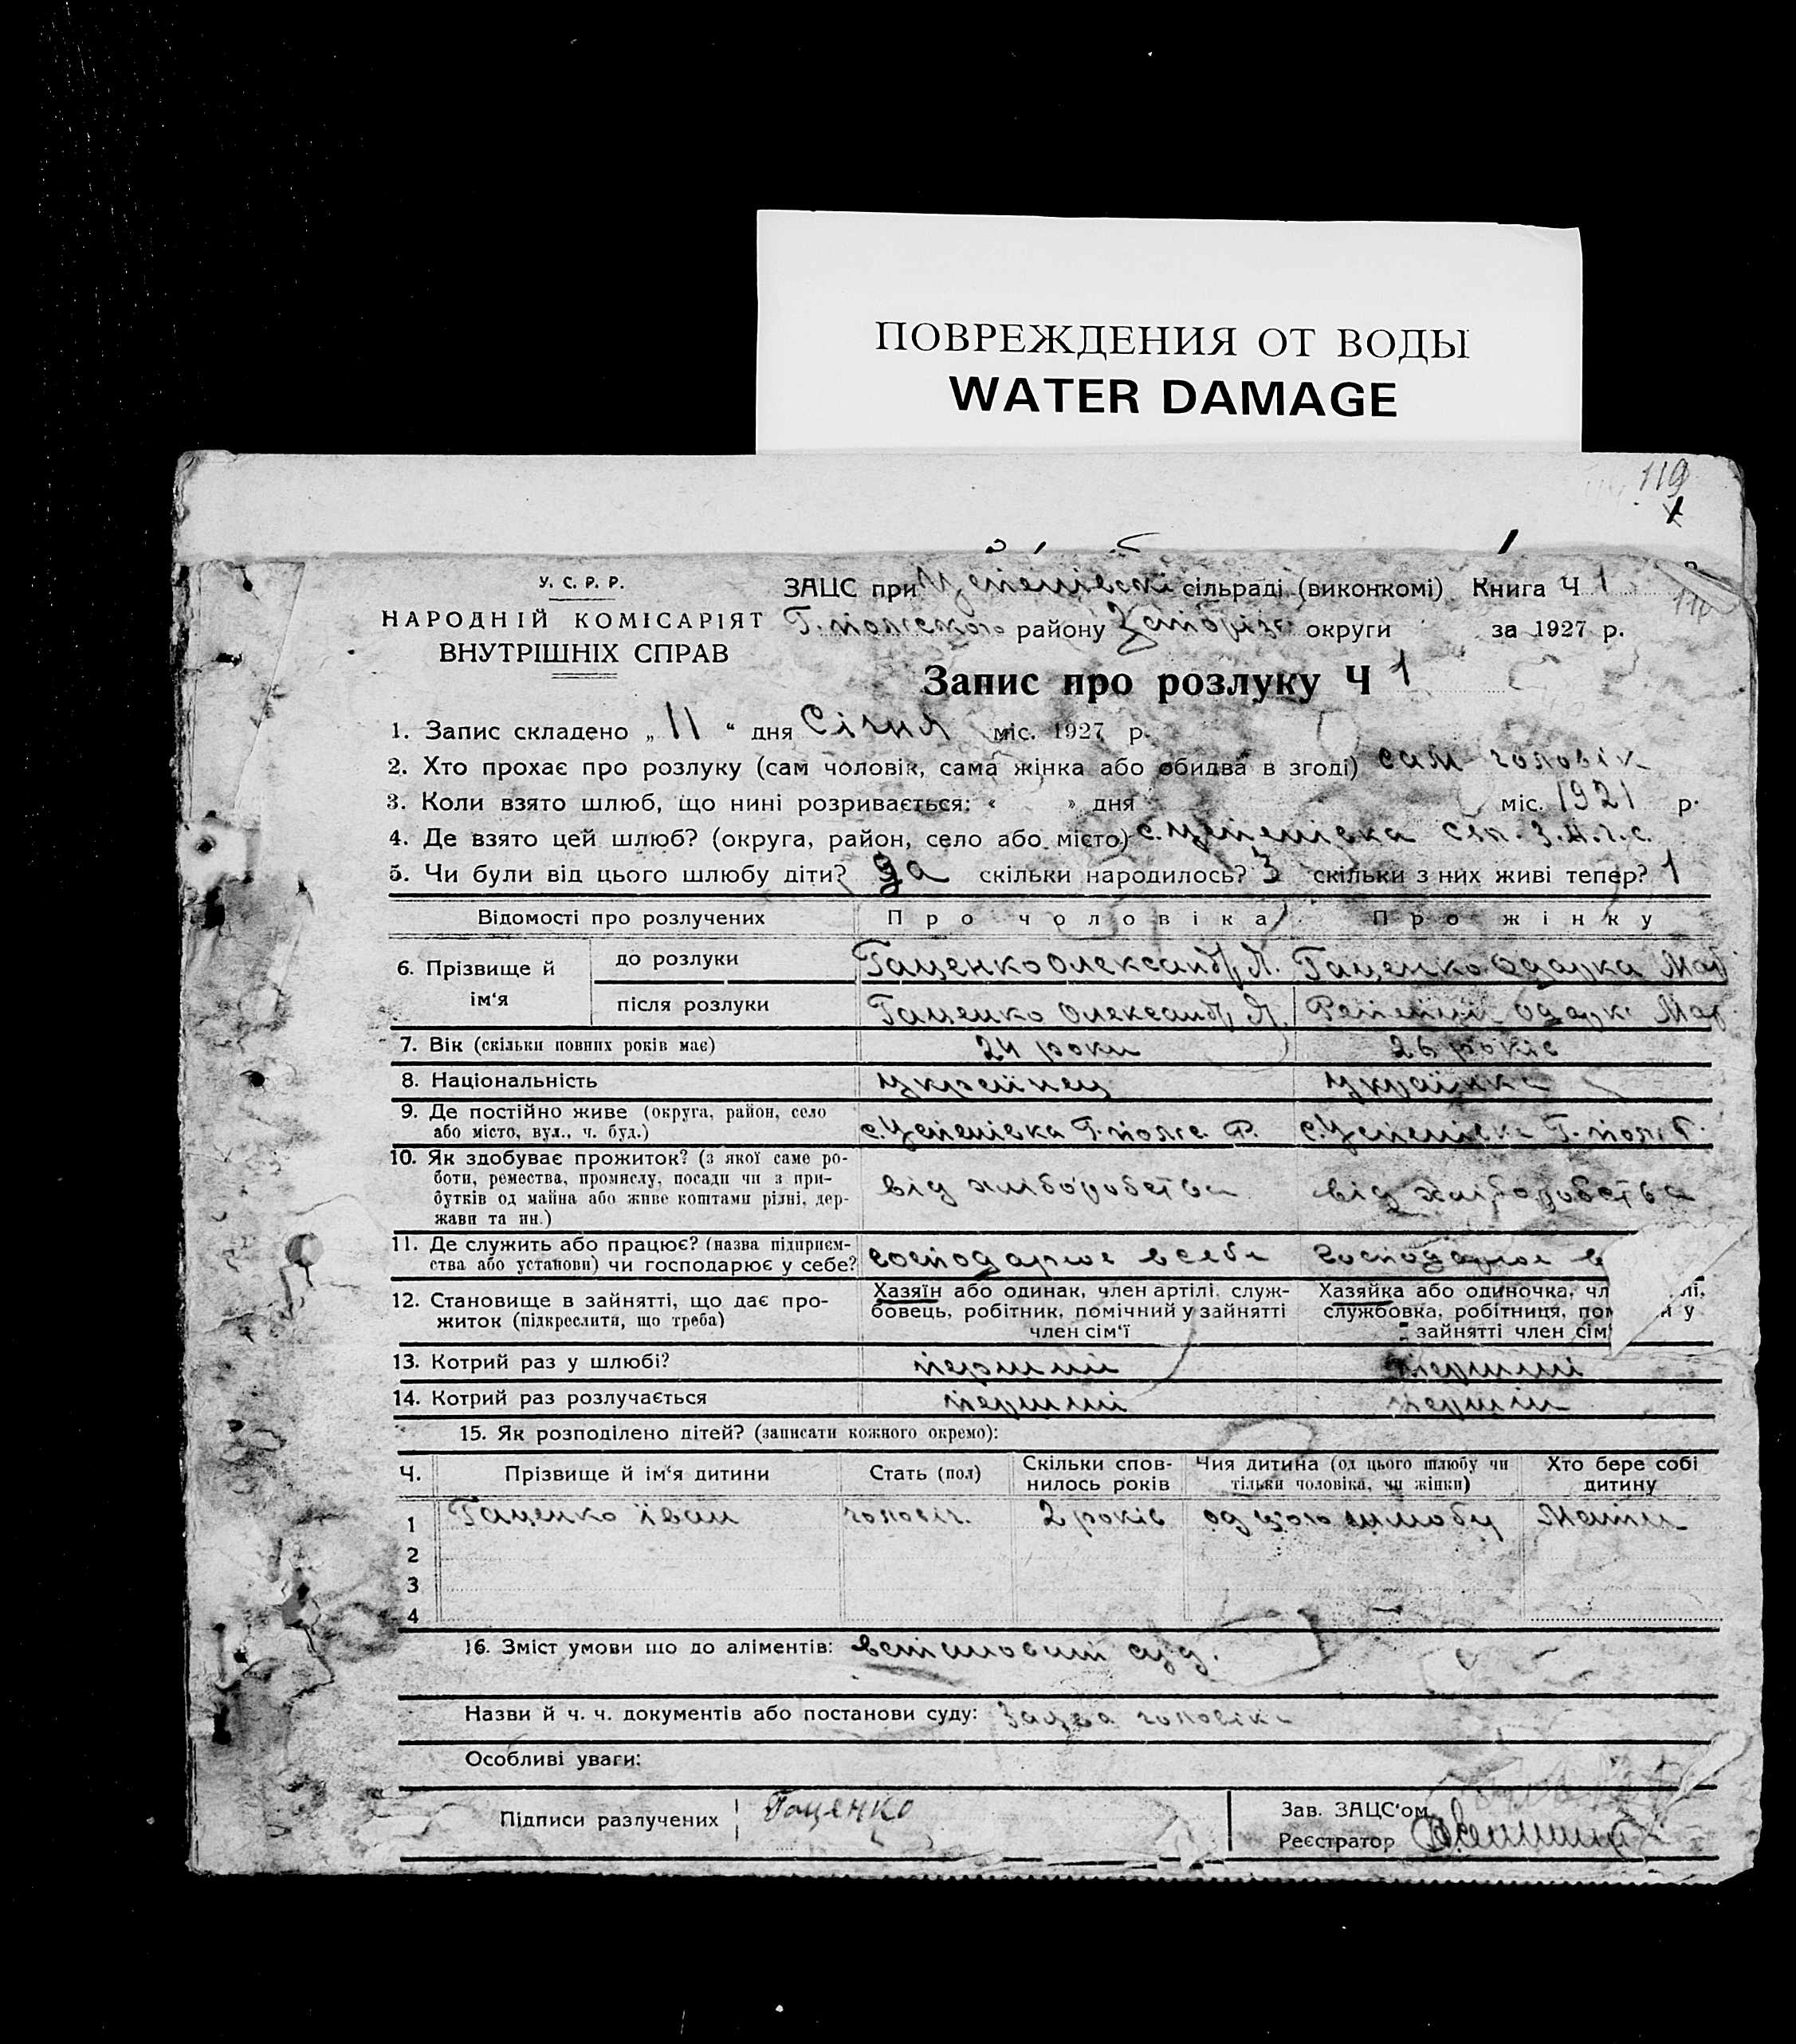 ПОВРЕЖДЕНИЯ ОТ ВОДЫ
WATER DAMAGE
119
1
У. С. Р. Р.
НАРОДНІЙ КОМІСАРІЯТ
ВНУТРІШНІХ СПРАВ
ЗАЦС при Успенівскі сільраді (виконкомі) Книга Ч 1
Г. польского району Запоріз округи за 1927 р.
Запис про розлуку Ч 1
1. Запис складено „ 11 “ дня Січня міс. 1927 р.
2. Хто прохає про розлуку (сам чоловік, сама жінка або обидва в згоді) сам чоловік
3. Коли взято шлюб, що нині розривається: « » дня міс. 1921 р.
4. Де взято цей шлюб? (округа, район, село або місто) с. Успенівка
5. Чи були від цього шлюбу діти? да скільки народилось? 3 скільки з них живі тепер? 1
Відомості про розлучених Про чоловіка Про жінку
6. Прізвище й ім‘я
до розлуки Гаценко Олександр Л. Гаценко Одарка Мар
після розлуки Гаценко Олександр Л. Одарк Мар
7. Вік (скільки повних років має) 24 роки 26 років
8. Національність Українец Українка
9. Де постійно живе (округа, район, село
або місто, вул., ч. буд.) с. Успенівка Г. польс. Р. с. Успенівка Г. поль Р.
10. Як здобуває прожиток? (з якої саме ро-
боти, ремества, промислу, посади чи з при-
бутків од майна або живе коштами рідні, дер-
жави та ин.) від хліборобства від хліборобства
11. Де служить або працює? (назва підприєм-
ства або установи) чи господарює у себе? господарює в себе господарює в
12. Становище в зайнятті, що дає про-
житок (підкреслити, що треба)
Хазяїн або одинак, член артілі, служ-
бовець, робітник, помічний у зайнятті
член сім‘ї
Хазяйка або одиночка, чл лі,
службовка, робітниця, пом й у
зайнятті член сім‘
13. Котрий раз у шлюбі? перший перший
14. Котрий раз розлучається перший перший
15. Як розподілено дітей? (записати кожного окремо):
Ч. Прізвище й ім‘я дитини Стать (пол) Скільки спов-
нилось років Чия дитина (од цього шлюбу чи
тільки чоловіка, чи жінки) Хто бере собі
дитину
1 Гаценко Іван чоловіч. 2 років од цього шлюбу Мати
2
3
4
16. Зміст умови що до аліментів: встановит суд.
Назви й ч. ч. документів або постанови суду: Заява чоловіка
Особливі уваги:
Підписи разлучених Гаценко
Зав. ЗАЦС‘ом
Реєстратор